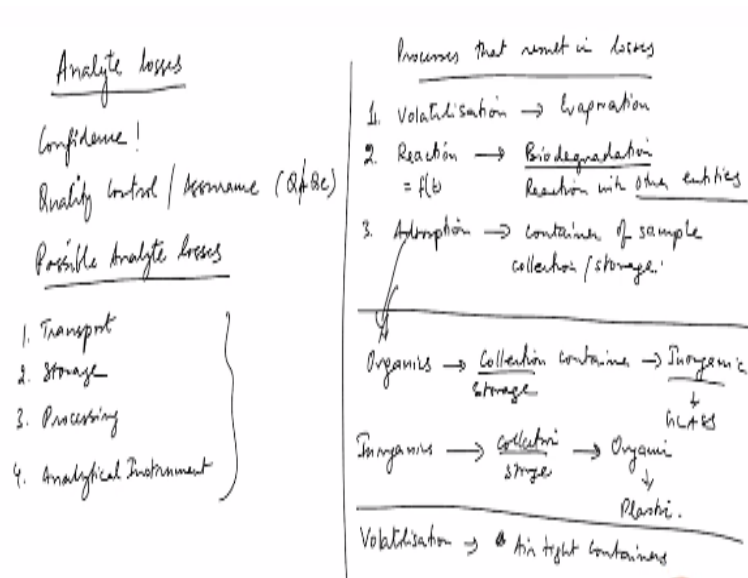 Analyte losses
Confidence!
Quality Control / Assurance (QA/QC)
Possible Analyte losses
1. Transport
2. Storage
3. Processing
4. Analytical Instrument
Processes that result in losses
1. Volatilisation → Evaporation
2. Reaction → Biodegradation
= f(t) Reaction with other entities
3. Adsorption → Container of sample
collection / storage.
Organics → Collection container → Inorganic
Storage ↓
GLASS
Inorganics → Collection → Organic
storage ↓
Plastic.
Volatilisation → Air tight Containers